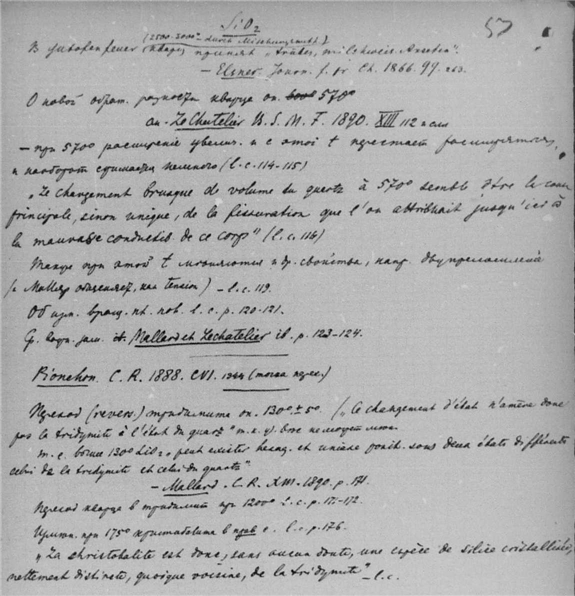 SiO2
57
(2500-3000° - durch Mischungsmeth.)
В
кварц принят "trübes, milchweis Ansehen".
- Elsner. Journ. f. pr Ch. 1866. 99. 263.
О новой обрат. разности кварца ок. 570°
ок. Le Chatelier B. S. M. F. 1890. XIII 112 и сл
- при 570° расширение увелич. и с этой t перестает расширяться,
и наоборот сжимается немного (l.c. 114-115)
"Le changement brusque de volume du quartz à 570° semble être la cause
principale, sinon unique, de la fissuration que l'on attribuait jusqu'ici à
la mauvaise conductib. de ce corps" (l.c. 116)
Также при этой t меняются и др. свойства, напр. двупреломлений
(и Mallard, как tension) - l.c. 119.
Об изм. вращ. пл. пол. l.c. p. 120-121.
Ср. Mallard et Lechatelier ib. p. 123-124.
Pionchon. C. R. 1888. CVI. (точка перех.)
Переход (revers.) тридимита ок. 130° ± 5°. ("le changement d'état n'amène donc
pas la tridymite à l'état du quartz" т.к. y). все
т.е. выше 130° SiO2 peut exister hexag. et uniaxe posit. sous deux états différents
celui de la tridymite et celui du quartz".
- Mallard. C. R. XIII. 1890. p. 171.
Переход кварца в тридимит при 1200° l.c. p. 171-172.
при 175° кристобалита в l.c. p. 176.
"La christobalite est donc, sans aucun doute, une espèce de silice cristallisée,
nettement distincte, quoique voisine, de la tridymite" - l.c.